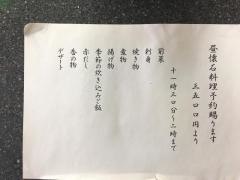 昼懐石料理予約賜ります
三五〇〇円より
十一時三〇分～二時まで
前菜
刺身
焼き物
煮物
揚げ物
季節の炊き込みご飯
赤だし
香の物
デザート